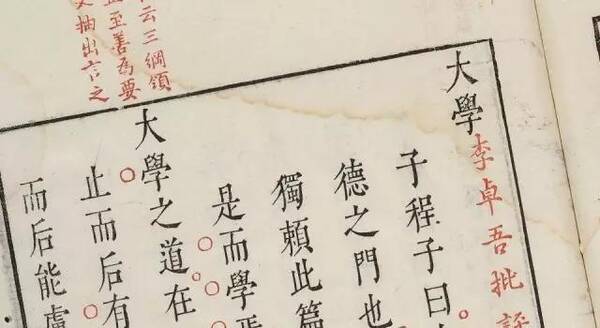 云三綱領
至善為要
抽出言之
大學
李卓吾批
子程子曰
德之門也
獨頼此篇
是而學焉
大學之道在
止而后有
而后能慮